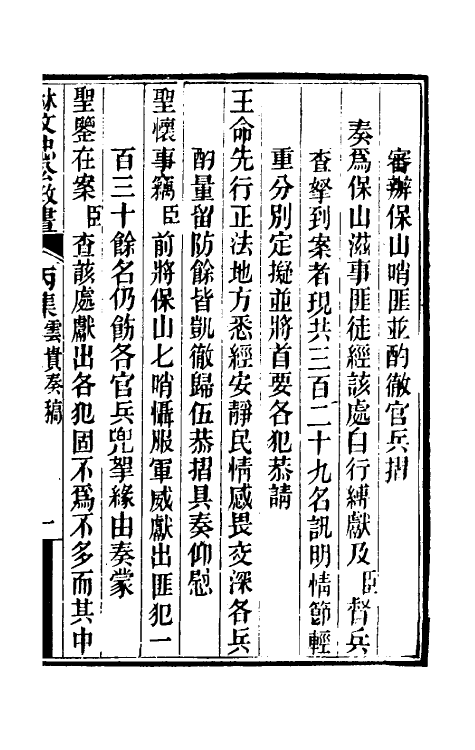 審辦保山哨匪並酌徹官兵摺
奏爲保山滋事匪徒經該處自行縛獻及臣督兵
查拏到案者現共三百二十九名訊明情節輕
重分別定擬並將首要各犯恭請
王命先行正法地方悉經安靜民情感畏交深各兵
酌量留防餘皆凱徹歸伍恭摺具奏仰慰
聖懷事竊臣前將保山七哨懾服軍威獻出匪犯一
百三十餘名仍飭各官兵兜拏緣由奏蒙
聖鑒在案臣查該處獻出各犯固不爲不多而其中
林文忠公政書 丙集 雲貴奏稿 一